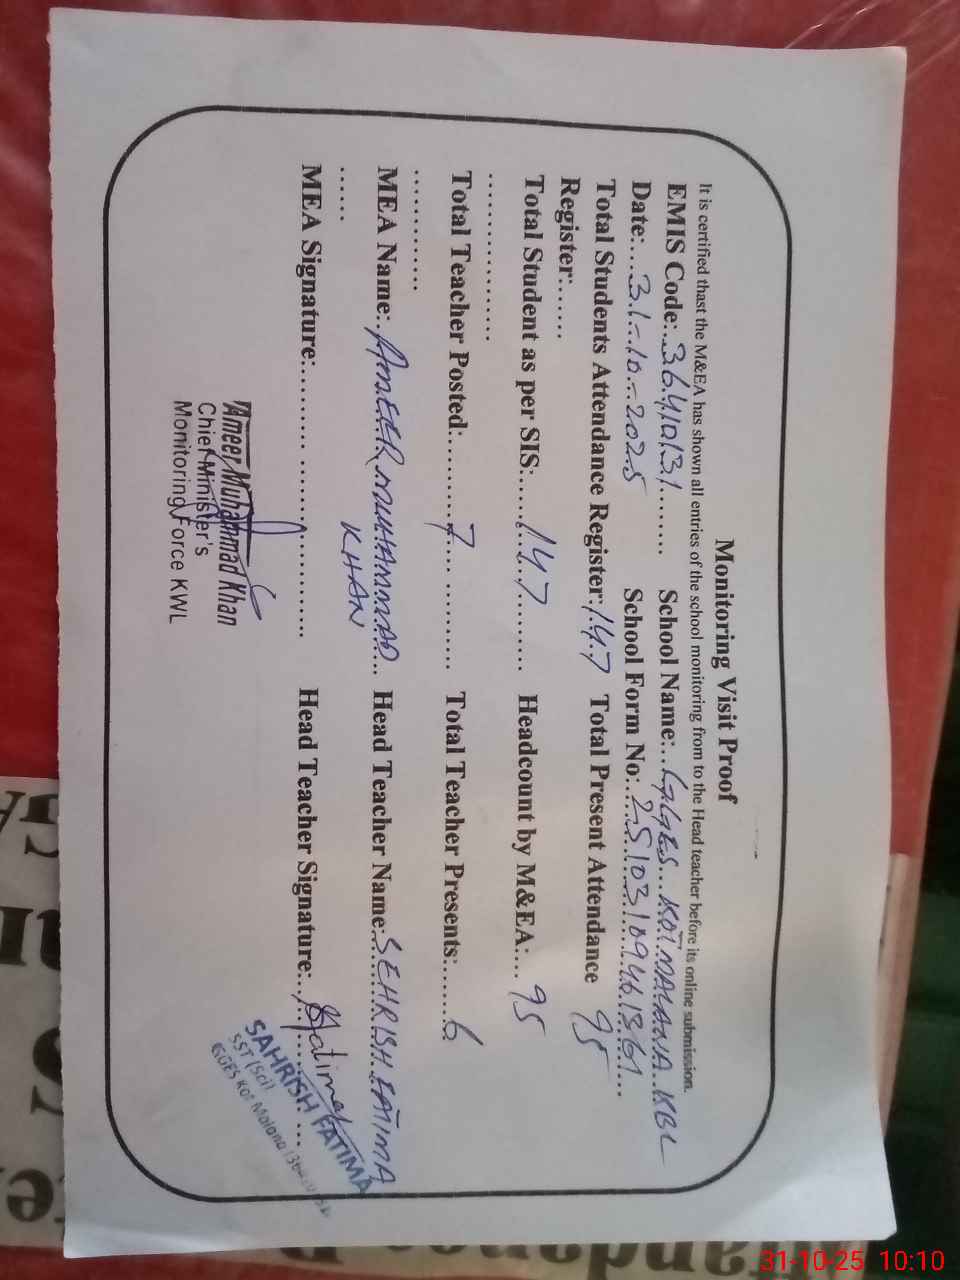 Monitoring Visit Proof
It is certified thast the M&EA has shown all entries of the school monitoring from to the Head teacher before its online submission.
EMIS Code:..36410131......... School Name:..GGES...KOT MALANA..KBL
Date:....31-10-2025 School Form No:
Total Students Attendance Register:147 Total Present Attendance
Register:...... 95
Total Student as per SIS:......147......... Headcount by M&EA:... 95
...............
Total Teacher Posted:..........7............. Total Teacher Presents:......6
...........
MEA Name:.AMEER MUHAMMAD.. Head Teacher Name:.SEHRISH FATIMA
..... KHAN
MEA Signature:....... ................ Head Teacher Signature:
Ameer Muhammad Khan
Chief Minister's
Monitoring Force KWL
SAHRISH FATIMA
SST (Sci)
GGES Kot Malana
31-10-25 10:10